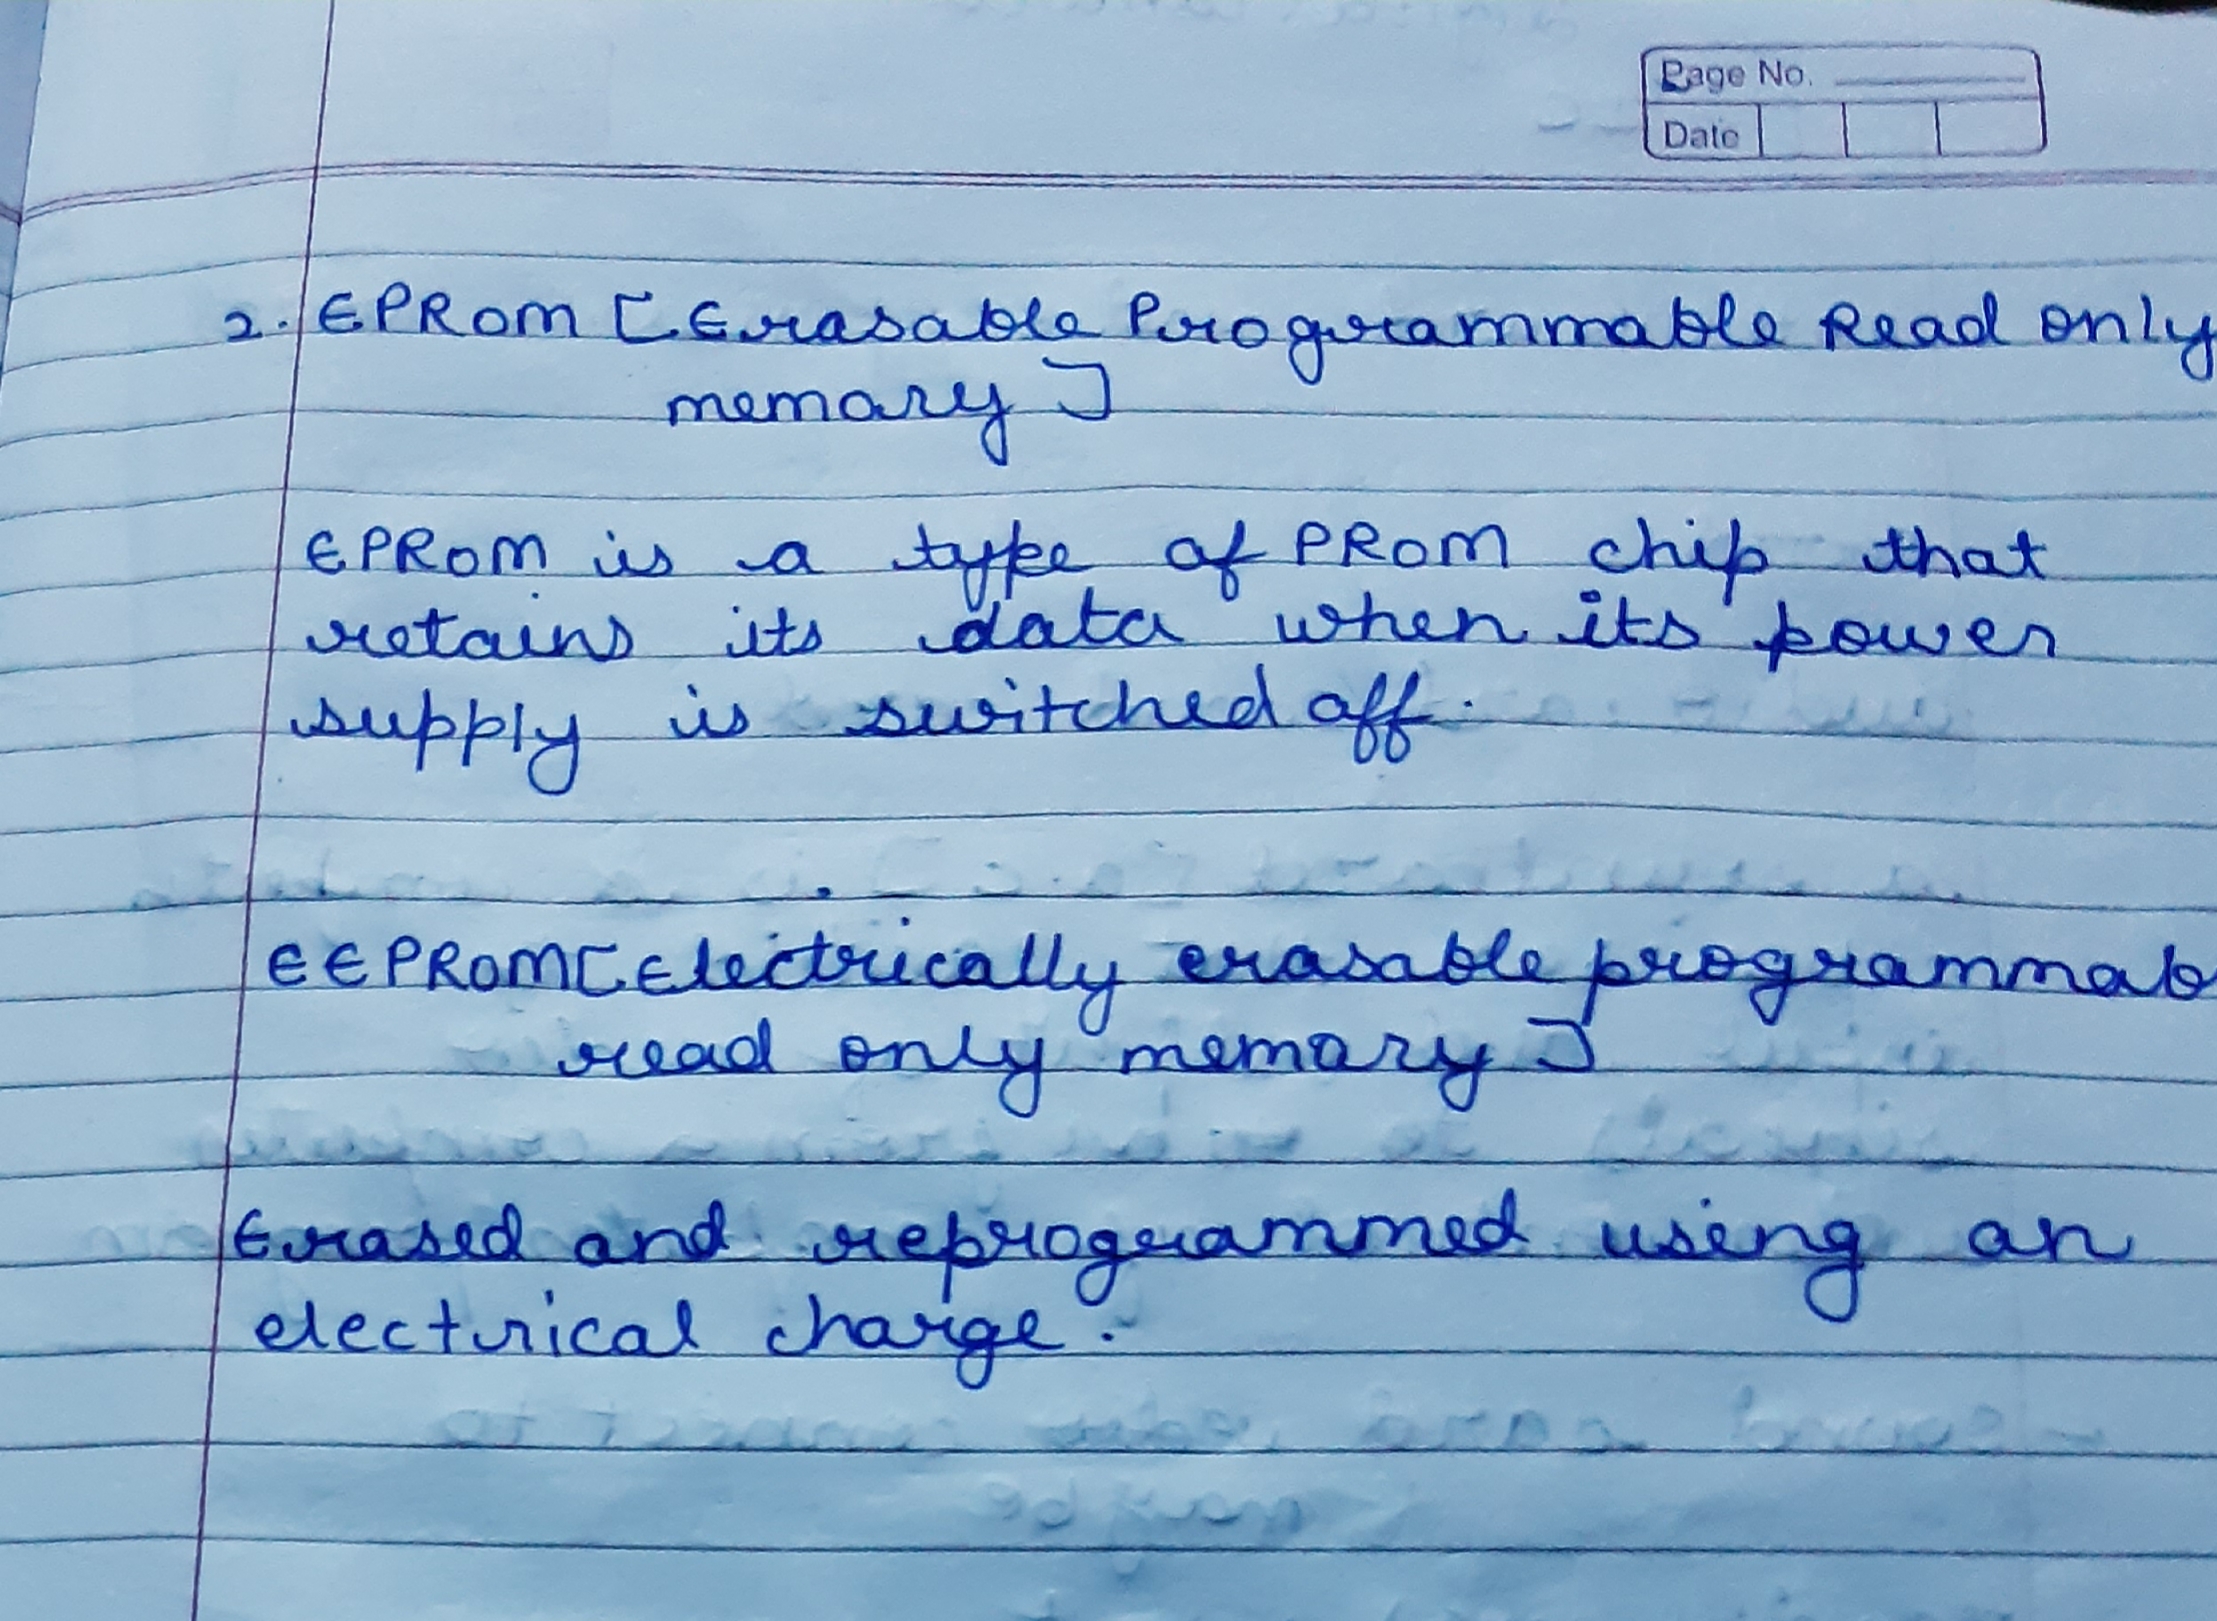 Page No.
Date
2. EPROM [Erasable Programmable Read only
memory]
EPROM is a type of PROM chip that
retains its data when its power
supply is switched off.
EEPROM [Electrically erasable programmab
read only memory]
Erased and reprogrammed using an
electrical charge.